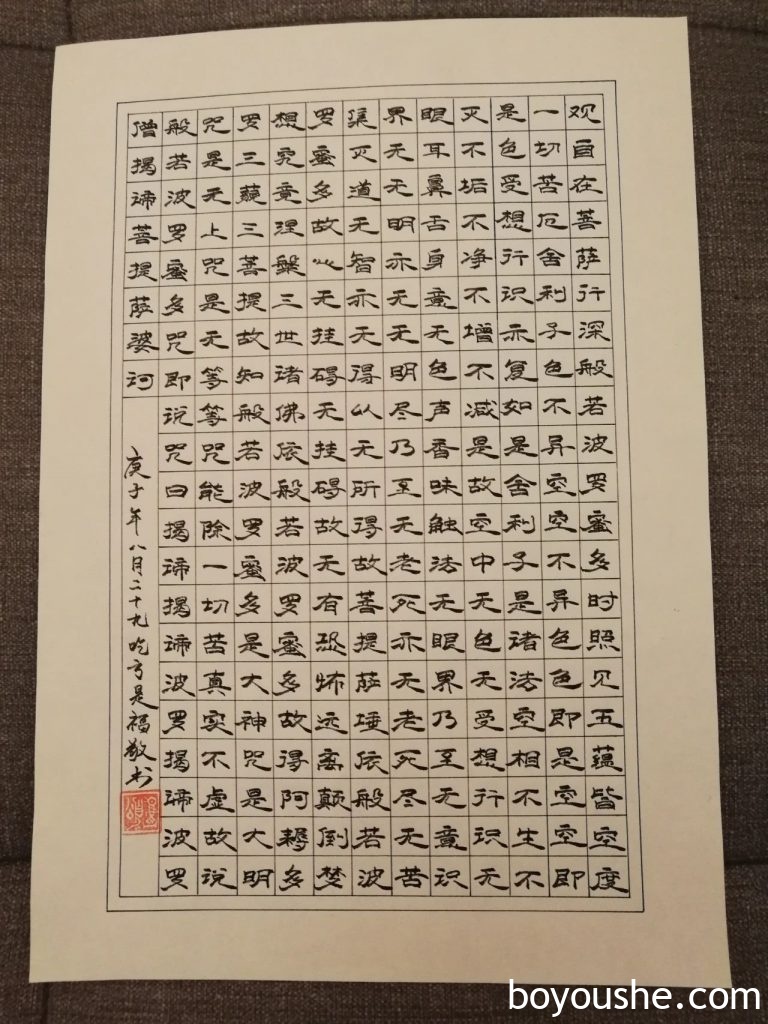 观自在菩萨行深般若波罗蜜多时照见五蕴皆空度
一切苦厄舍利子色不异空空不异色色即是空空即
是色受想行识亦复如是舍利子是诸法空相不生不
灭不垢不净不增不减是故空中无色无受想行识无
眼耳鼻舌身意无色声香味触法无眼界乃至无意识
界无无明亦无无明尽乃至无老死亦无老死尽无苦
集灭道无智亦无得以无所得故菩提萨埵依般若波
罗蜜多故心无挂碍无挂碍故无有恐怖远离颠倒梦
想究竟涅槃三世诸佛依般若波罗蜜多故得阿耨多
罗三藐三菩提故知般若波罗蜜多是大神咒是大明
咒是无上咒是无等等咒能除一切苦真实不虚故说
般若波罗蜜多咒即说咒曰揭谛揭谛波罗揭谛波罗
僧揭谛菩提萨婆诃
庚子年八月二十九吃亏是福敬书
boyoushe.com